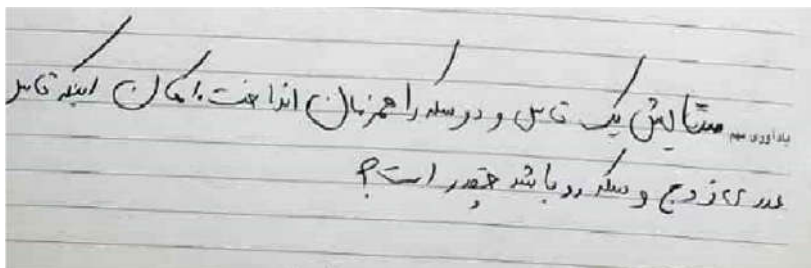 یادآوری مهم ستایش یک تاس و دو سکه را همزمان انداخت. امکان اینکه تاس
عددی زوج و سکه رو باشد چقدر است؟